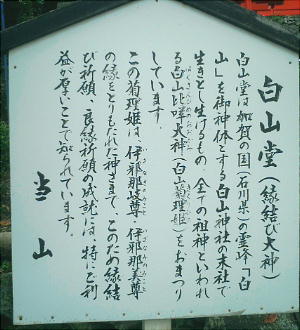 白山堂(縁結び大神)
白山堂は加賀の国(石川県)の霊峰「白
山」を御神体とする白山神社の末社で
生きとし生けるもの、全ての祖神といわれ
る白山比咩大神(白山菊理姫)をおまつり
しています。
この菊理姫は、伊邪那岐尊、伊邪那美尊
の縁をとりもたれた神さまで、このため縁結
び祈願、良縁祈願の成就には、特にご利
益が厚いことで知られています。
当山